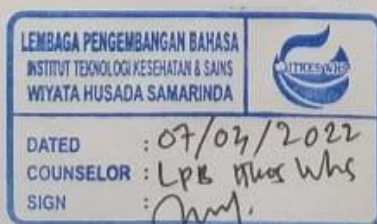 LEMBAGA PENGEMBANGAN BAHASA
INSTITUT TEKNOLOGI KESEHATAN & SAINS
WIYATA HUSADA SAMARINDA
ITKES WHS
DATED : 07/04/2022
COUNSELOR : LPB ITKes Whs
SIGN :